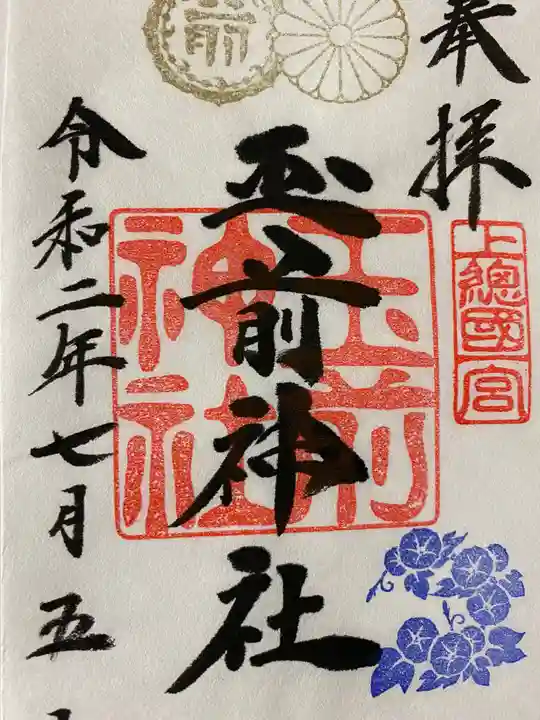 奉拝
上總國一宮
玉前神社
玉前神社
令和二年七月五日
前